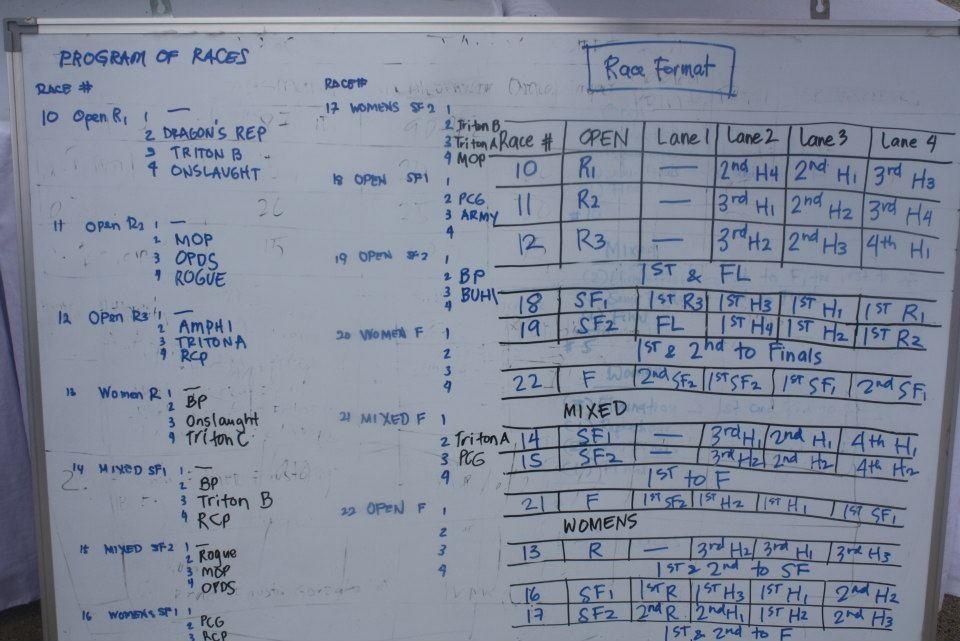 PROGRAM OF RACES
RACE #
10 Open R1 1 —
2 DRAGON'S REP
3 TRITON B
4 ONSLAUGHT
11 Open R2 1 —
2 MOP
3 OPDS
4 ROGUE
12 Open R3 1 —
2 AMPHI
3 TRITON A
4 RCP
13 Women R 1 —
2 BP
3 Onslaught
4 Triton C
14 MIXED SF1 1 —
2 BP
3 Triton B
4 RCP
15 MIXED SF2 1 —
2 Rogue
3 MOP
4 OPDS
16 WOMENS SF1 1
2 PCG
3 RCP
RACE #
17 WOMENS SF2 1
2 Triton B
3 Triton A
4 MOP
18 OPEN SF1 1
2 PCG
3 ARMY
4
19 OPEN SF2 1
2 BP
3 BUHI
4
20 WOMEN F 1
2
3
4
21 MIXED F 1
2 Triton A
3 PCG
4
22 OPEN F 1
2
3
4
Race Format
Race # OPEN Lane 1 Lane 2 Lane 3 Lane 4
10 R1 — 2nd H4 2nd H1 3rd H3
11 R2 — 3rd H1 2nd H2 3rd H4
12 R3 — 3rd H2 2nd H3 4th H1
1ST & FL
18 SF1 1ST R3 1ST H3 1ST H1 1ST R1
19 SF2 FL 1ST H4 1ST H2 1ST R2
1ST & 2nd to Finals
22 F 2nd SF2 1ST SF2 1ST SF1 2nd SF1
MIXED
14 SF1 — 3rd H1 2nd H1 4th H1
15 SF2 — 3rd H2 2nd H2 4th H2
1ST to F
21 F 1ST SF2 1ST H2 1ST H1 1ST SF1
WOMENS
13 R — 3rd H2 3rd H1 3rd H3
1ST & 2nd to SF
16 SF1 1ST R 1ST H3 1ST H1 2nd H2
17 SF2 2nd R 2nd H1 1ST H2 2nd H3
1ST & 2nd to F